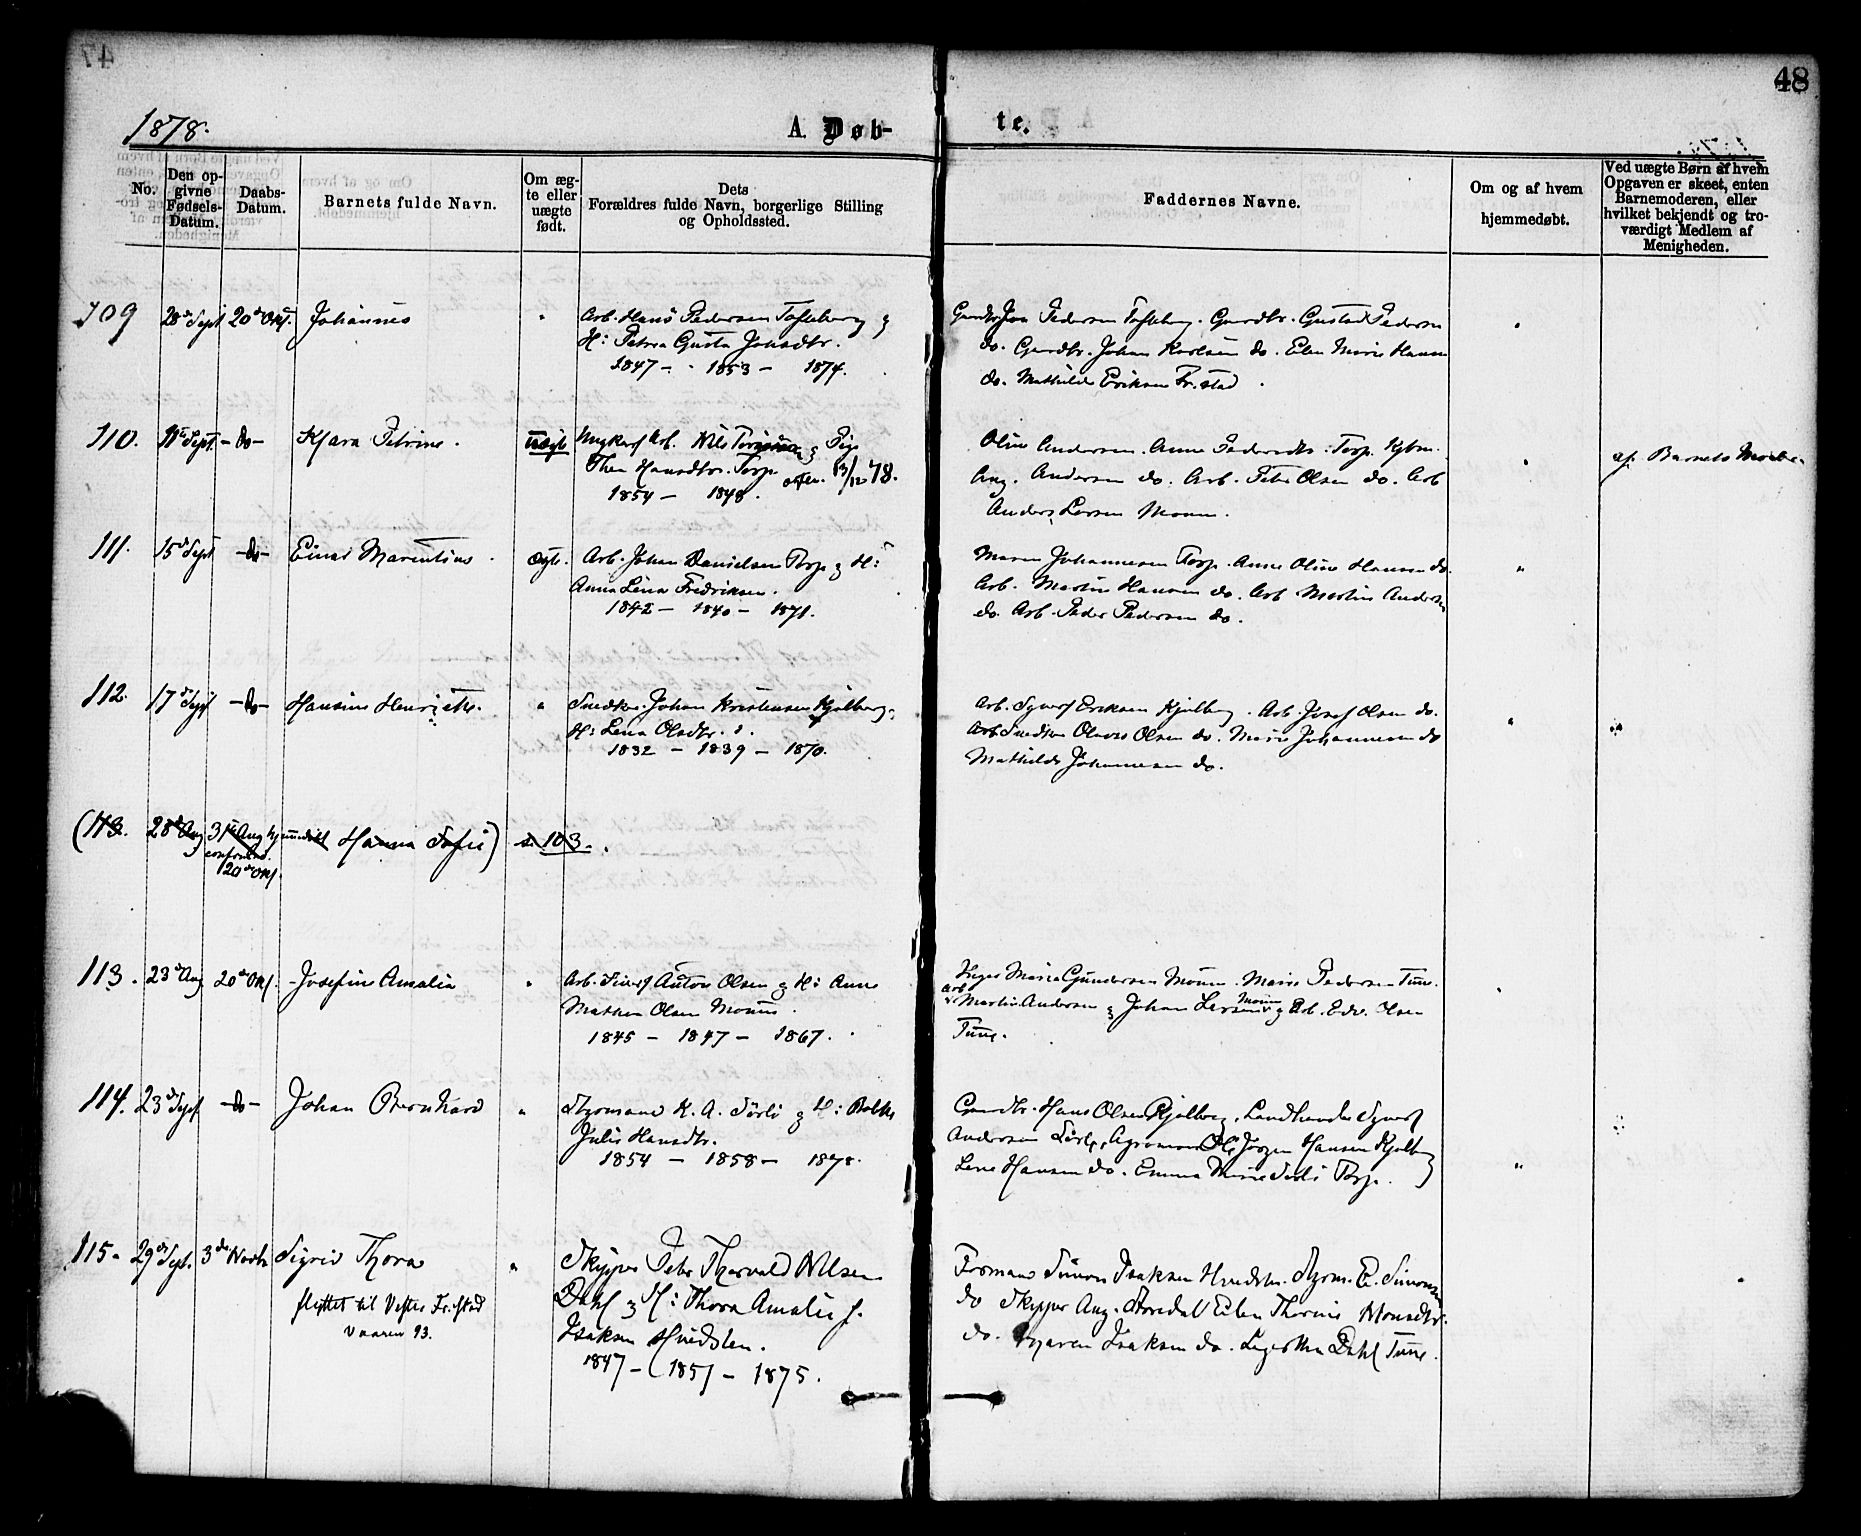 48
1878.
A. Døb-
te.
No.
Den op-
givne
Fødsels-
Datum.
Daabs-
Datum.
Barnets fulde Navn.
Om æg-
te eller
uægte
født.
Dets
Forældres fulde Navn, borgerlige Stilling
og Opholdssted.
Faddernes Navne.
Om og af hvem
hjemmedøbt.
Ved uægte Børn af hvem
Opgaven er skeet, enten
Barnemoderen, eller
hvilket bekjendt og tro-
værdigt Medlem af
Menigheden.
109 28de Sept 20de Okt. Johannes " Arb. Hans Pedersen Tofteberg &
H: Petrea Gusta Johsdtr.
1847 - 1853 - 1874.
Pedersen Tofteberg. Gaardbr. Gustad Pedersen
do. Gaardbr. Johan Karlsen do. Elen Marie Hansen
do. Mathilde Eriksen Fr.stad
110. 11te Sept. - do - Klara Petrine. uægte Ungkarl Arb. Nils & Pige
Thea Hansdtr. Torp
1854 - 1848. 13/12 78.
Oline Andersen. Anne Pedersdtr: Torp.
Aug. Andersen do. Arb. Peter Olsen do. Arb
Anders Larsen Moum.
af Barnets Moder.
111. 15de Sept - do - Einar Marentius. ægte. Arb. Johan Danielsen Torp & H:
Anna Lena Fredriksen.
1842 - 1840 - 1871.
Maren Johannesen Torp. Anne Oline Hansen do.
Arb. Martin Hansen do. Arb Martin Andersen
do. Arb. Peder Pedersen do.
112. 17de Sept - do - Hansine Henriette. " Snedker Johan Kristensen Kjølberg
H: Lena Olsdtr.
1832 - 1839 - 1870.
Arb. Syver Eriksen Kjølberg. Arb. Josef Olsen do.
Olaves Olsen do. Marie Johannesen do
Mathilde Johannesen do.
(113. 28de Aug 31te Aug hjemmedøbt Hanna Sofie) s. 103.
20de Okt.
113. 23de Aug 20de Okt. Josefine Amalia " Arb. Anton Olsen & H: Anne
Mathea Olsen Moum.
1845 - 1847 - 1867.
Inger Marie Gundersen Moum. Marie Pedersen Tune.
Arb. Martin Andersen & Johan Larsen Moum & Arb. Edv. Olsen
Tune.
114. 23de Sept. - do - Johan Bernhard " Styrmand K. A. Sørli & H: Bolette
Julie Hansdtr.
1854 - 1858 - 1878.
Gaardbr. Hans Olsen Kjølberg, Landhandler Syver
Andersen Jørgen Hansen Kjølberg
Lene Hansen do. Emma Marie Sørli Torp.
115. 29de Sept. 3de Novbr Sigrid Thora " Skipper Peter Thorvald Nilsen
flyttet til Vestre Fr.stad
Vaaren 93.
Dahl & H: Thora Amalie f.
Isaksen Hvidsten.
1847 - 1851 - 1875.
Formand Simon Isaksen Hvidsten. Styrm. E. Simonsen
do Skipper Aug. Elen Thorine Monsdtr.
do. Maren Isaksen do. Dahl Tune.